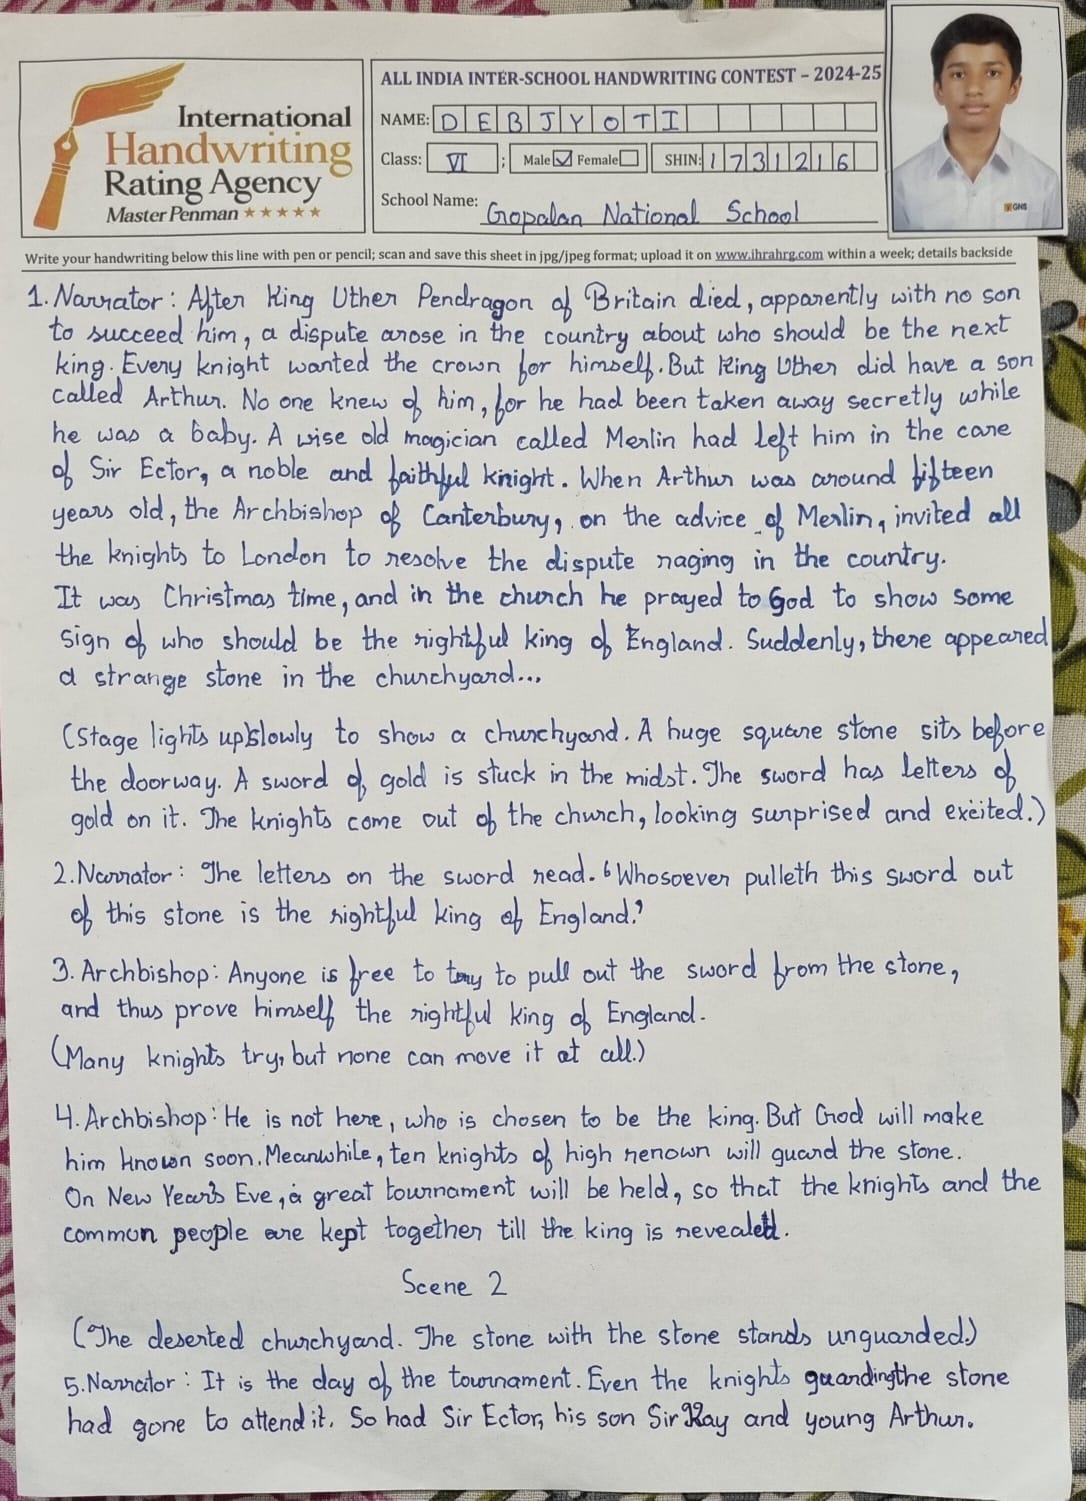 International
Handwriting
Rating Agency
Master Penman ★★★★★
ALL INDIA INTER-SCHOOL HANDWRITING CONTEST – 2024-25
NAME: DEBJYOTI
Class: VI ; Male ☑ Female ☐ SHIN: 1731216
School Name: Gopalan National School
GNS
Write your handwriting below this line with pen or pencil; scan and save this sheet in jpg/jpeg format; upload it on www.ihrahrg.com within a week; details backside
1. Narrator: After King Uther Pendragon of Britain died, apparently with no son
to succeed him, a dispute arose in the country about who should be the next
king. Every knight wanted the crown for himself. But King Uther did have a son
called Arthur. No one knew of him, for he had been taken away secretly while
he was a baby. A wise old magician called Merlin had left him in the care
of Sir Ector, a noble and faithful knight. When Arthur was around fifteen
years old, the Archbishop of Canterbury, on the advice of Merlin, invited all
the knights to London to resolve the dispute raging in the country.
It was Christmas time, and in the church he prayed to God to show some
sign of who should be the rightful king of England. Suddenly, there appeared
a strange stone in the churchyard...
(Stage lights up slowly to show a churchyard. A huge square stone sits before
the doorway. A sword of gold is stuck in the midst. The sword has letters of
gold on it. The knights come out of the church, looking surprised and excited.)
2. Narrator: The letters on the sword read. 'Whosoever pulleth this sword out
of this stone is the rightful king of England.'
3. Archbishop: Anyone is free to try to pull out the sword from the stone,
and thus prove himself the rightful king of England.
(Many knights try, but none can move it at all.)
4. Archbishop: He is not here, who is chosen to be the king. But God will make
him known soon. Meanwhile, ten knights of high renown will guard the stone.
On New Year's Eve, a great tournament will be held, so that the knights and the
common people are kept together till the king is revealed.
Scene 2
(The deserted churchyard. The stone with the stone stands unguarded.)
5. Narrator: It is the day of the tournament. Even the knights guarding the stone
had gone to attend it. So had Sir Ector, his son Sir Kay and young Arthur.